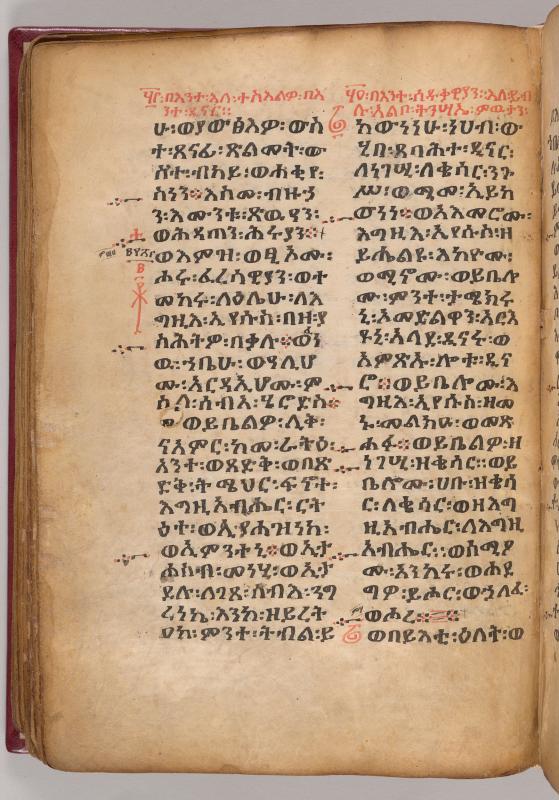 በእንተ፡እለ፡ተስእልዎ፡በእ
ንተ፡ዲናር፡፡
ሁ፡ወያውፅእዎ፡ውስ
ተ፡ጸናፊ፡ጽልመት፡ው
ሀየ፡ብካይ፡ወሐቂየ፡
ስነን፡እስመ፡ብዙኃ
ን፡እሙንቱ፡ጽዉዓን፡
ወሕዳጣን፡ኅሩያን፡
ወእምዝ፡ወፂኦሙ፡
ሖሩ፡ፈሪሳዊያን፡ወተ
መከሩ፡ለዕሌሁ፡ለእ
ግዚእ፡ኢየሱስ፡በዘ፡ያ
ስሕትዎ፡በቃሉ፡ወፈነ
ዉ፡ኀቤሁ፡ወዓሊሆ
ሙ፡አርዳኢሆሙ፡ም
ስለ፡ሰብአ፡ሄሮድስ
ወይቤልዎ፡ሊቅ፡
ናአምር፡ከመ፡ራትዕ፡
አንተ፡ወጻድቅ፡ወበጽ
ድቅ፡ትሜህር፡ፍኖተ፡
እግዚአብሔር፡ርት
ዕተ፡ወኢያሐዝነከ፡
ወኢምንተኒ፡ወኢታ
ሐስብ፡መነሂ፡ወኢታ
ደሉ፡ለገጸ፡ሰብእ፡ንግ
ረነኬ፡እንከ፡ዘይረት
ዐከ፡ምንተ፡ትብል፡ይ
በእንተ፡ሰዱቃዊያን፡እለ፡ይብ
ሉ፡አልቦ፡ትንሣኤ፡ምዉታን፡
ከውነንሁ፡ንሀብ፡ው
ሂበ፡ጸባሕተ፡ዲናር፡
ለነገሢ፡ለቄሳር፡ንጉ
ሥ፡ወሚመ፡ኢይከ
ውነነ፡ወአእመሮሙ፡
እግዚእ፡ኢየሱስ፡ዘ
ይሔልዩ፡እከዮሙ፡
ወሚኖሙ፡ወይቤሎ
ሙ፡ምንተ፡ታሜክሩ
ኒ፡ኦመድልዋን፡አርእ
ዩኒ፡አላደ፡ዲናሩ፡ወ
አምጽኡ፡ሎቱ፡ዲና
ሮ፡ወይቤሎሙ፡እ
ግዚእ፡ኢየሱስ፡ዘመ
ኑ፡መልክዑ፡ወመጽ
ሐፉ፡ወይቤልዎ፡ዘ
ነገሢ፡ዘቄሳር፡፡ወይ
ቤሎሙ፡ሀቡ፡ዘቄሳ
ር፡ለቄሳር፡ወዘእግ
ዚአብሔር፡ለእግዚ
አብሔር፡፡ወሰሚዖ
ሙ፡አንከሩ፡ወሐደ
ግዎ፡ይሖር፡ወኃለፈ፡
ወሖረ፡፡
ወበይእቲ፡ዕለት፡ወ